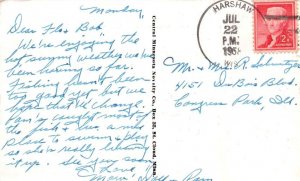 Monday
Dear Flo & Bob
We're enjoying the
hot sunny weather we've
been having so far.
Fishing hasn't been
too good yet but we
hope that'll change.
Pam's caught most of
the fish & has a nice
place to swim & play
so she's really living
it up. See you soon
Love
Marv, Dell & Pam
Central Minnesota Novelty Co., Box St. Cloud, Minn.
MARSHAW
JUL
22
P.M.
195
WIS
2¢
Mr. & Mrs. R. Schnitzer
4151 Du Bois Blvd.
Congress Park, Ill.